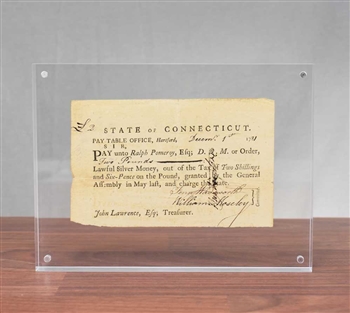 £ 2
STATE OF CONNECTICUT.
PAY TABLE OFFICE, Hartford, Decemr 1st 1781
SIR,
PAY unto Ralph Pomeroy, Esq; D. Q. M. or Order,
Two Pounds
Lawful Silver Money, out of the Tax of Two Shillings
and Six-Pence on the Pound, granted by the General
Assembly in May last, and charge the State.
William Moseley
John Lawrence, Esq; Treasurer.